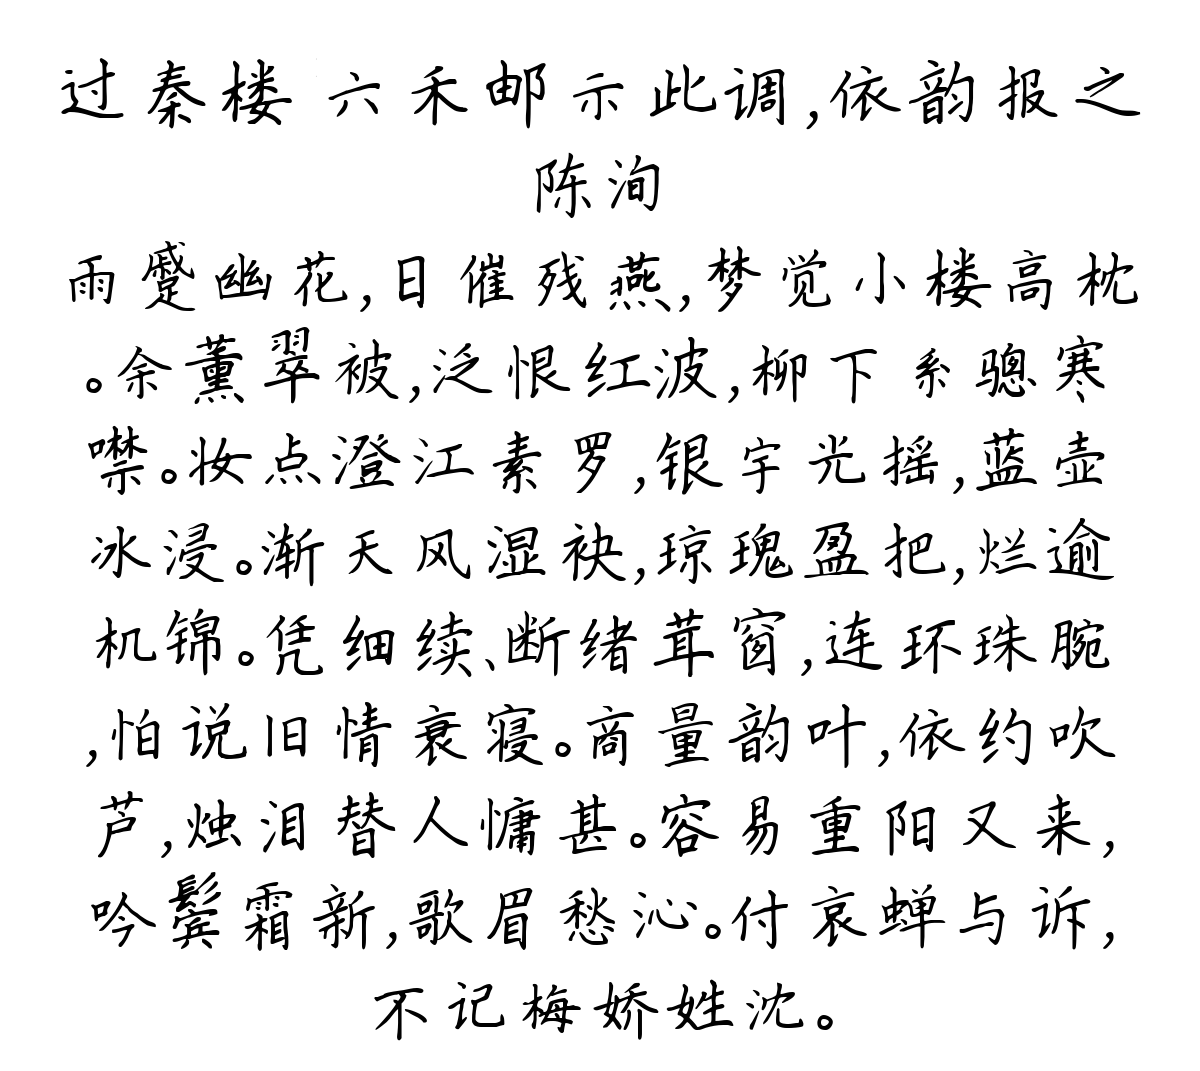 过秦楼 六禾邮示此调,依韵报之
陈洵
雨蹙幽花,日催残燕,梦觉小楼高枕
。余薰翠被,泛恨红波,柳下系骢寒
噤。妆点澄江素罗,银宇光摇,蓝壶
冰浸。渐天风湿袂,琼瑰盈把,烂逾
机锦。凭细续、断绪茸窗,连环珠腕
,怕说旧情衰寝。商量韵叶,依约吹
芦,烛泪替人慵甚。容易重阳又来,
吟鬓霜新,歌眉愁沁。付哀蝉与诉,
不记梅娇姓沈。